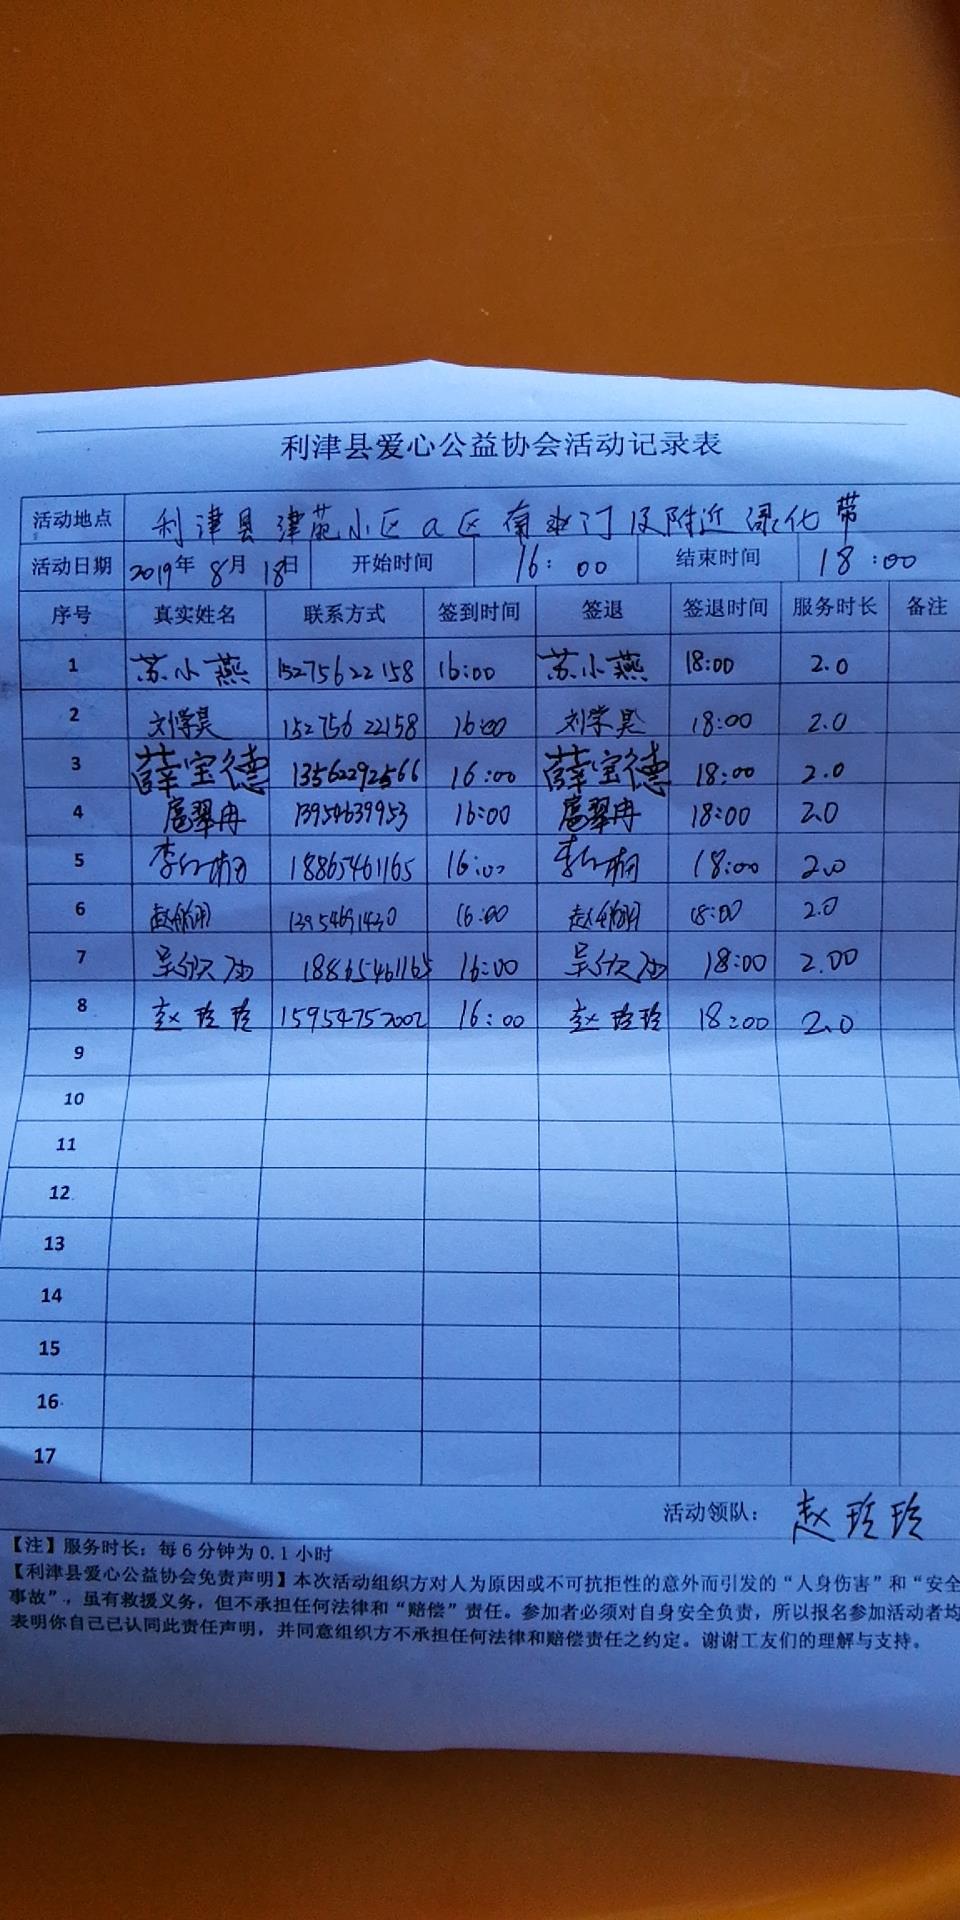 利津县爱心公益协会活动记录表
活动地点 利津县津苑小区a区南 门及附近绿化带
活动日期 2019年8月18日 开始时间 16:00 结束时间 18:00
序号 真实姓名 联系方式 签到时间 签退 签退时间 服务时长 备注
1 苏小燕 15275622158 16:00 苏小燕 18:00 2.0
2 刘学昊 15275622158 16:00 刘学昊 18:00 2.0
3 薛宝德 13562292566 16:00 薛宝德 18:00 2.0
4 扈翠冉 13954639953 16:00 扈翠冉 18:00 2.0
5 李 18865461165 16:00 李 18:00 2.0
6 赵 13954691430 16:00 赵 18:00 2.0
7 吴欣 18865461165 16:00 吴欣 18:00 2.00
8 赵玲玲 15954752002 16:00 赵玲玲 18:00 2.0
9
10
11
12
13
14
15
16
17
活动领队： 赵玲玲
【注】服务时长：每6分钟为0.1小时
【利津县爱心公益协会免责声明】本次活动组织方对人为原因或不可抗拒性的意外而引发的“人身伤害”和“安全
事故”，虽有救援义务，但不承担任何法律和“赔偿”责任。参加者必须对自身安全负责，所以报名参加活动者均
表明你自己已认同此责任声明，并同意组织方不承担任何法律和赔偿责任之约定。谢谢工友们的理解与支持。